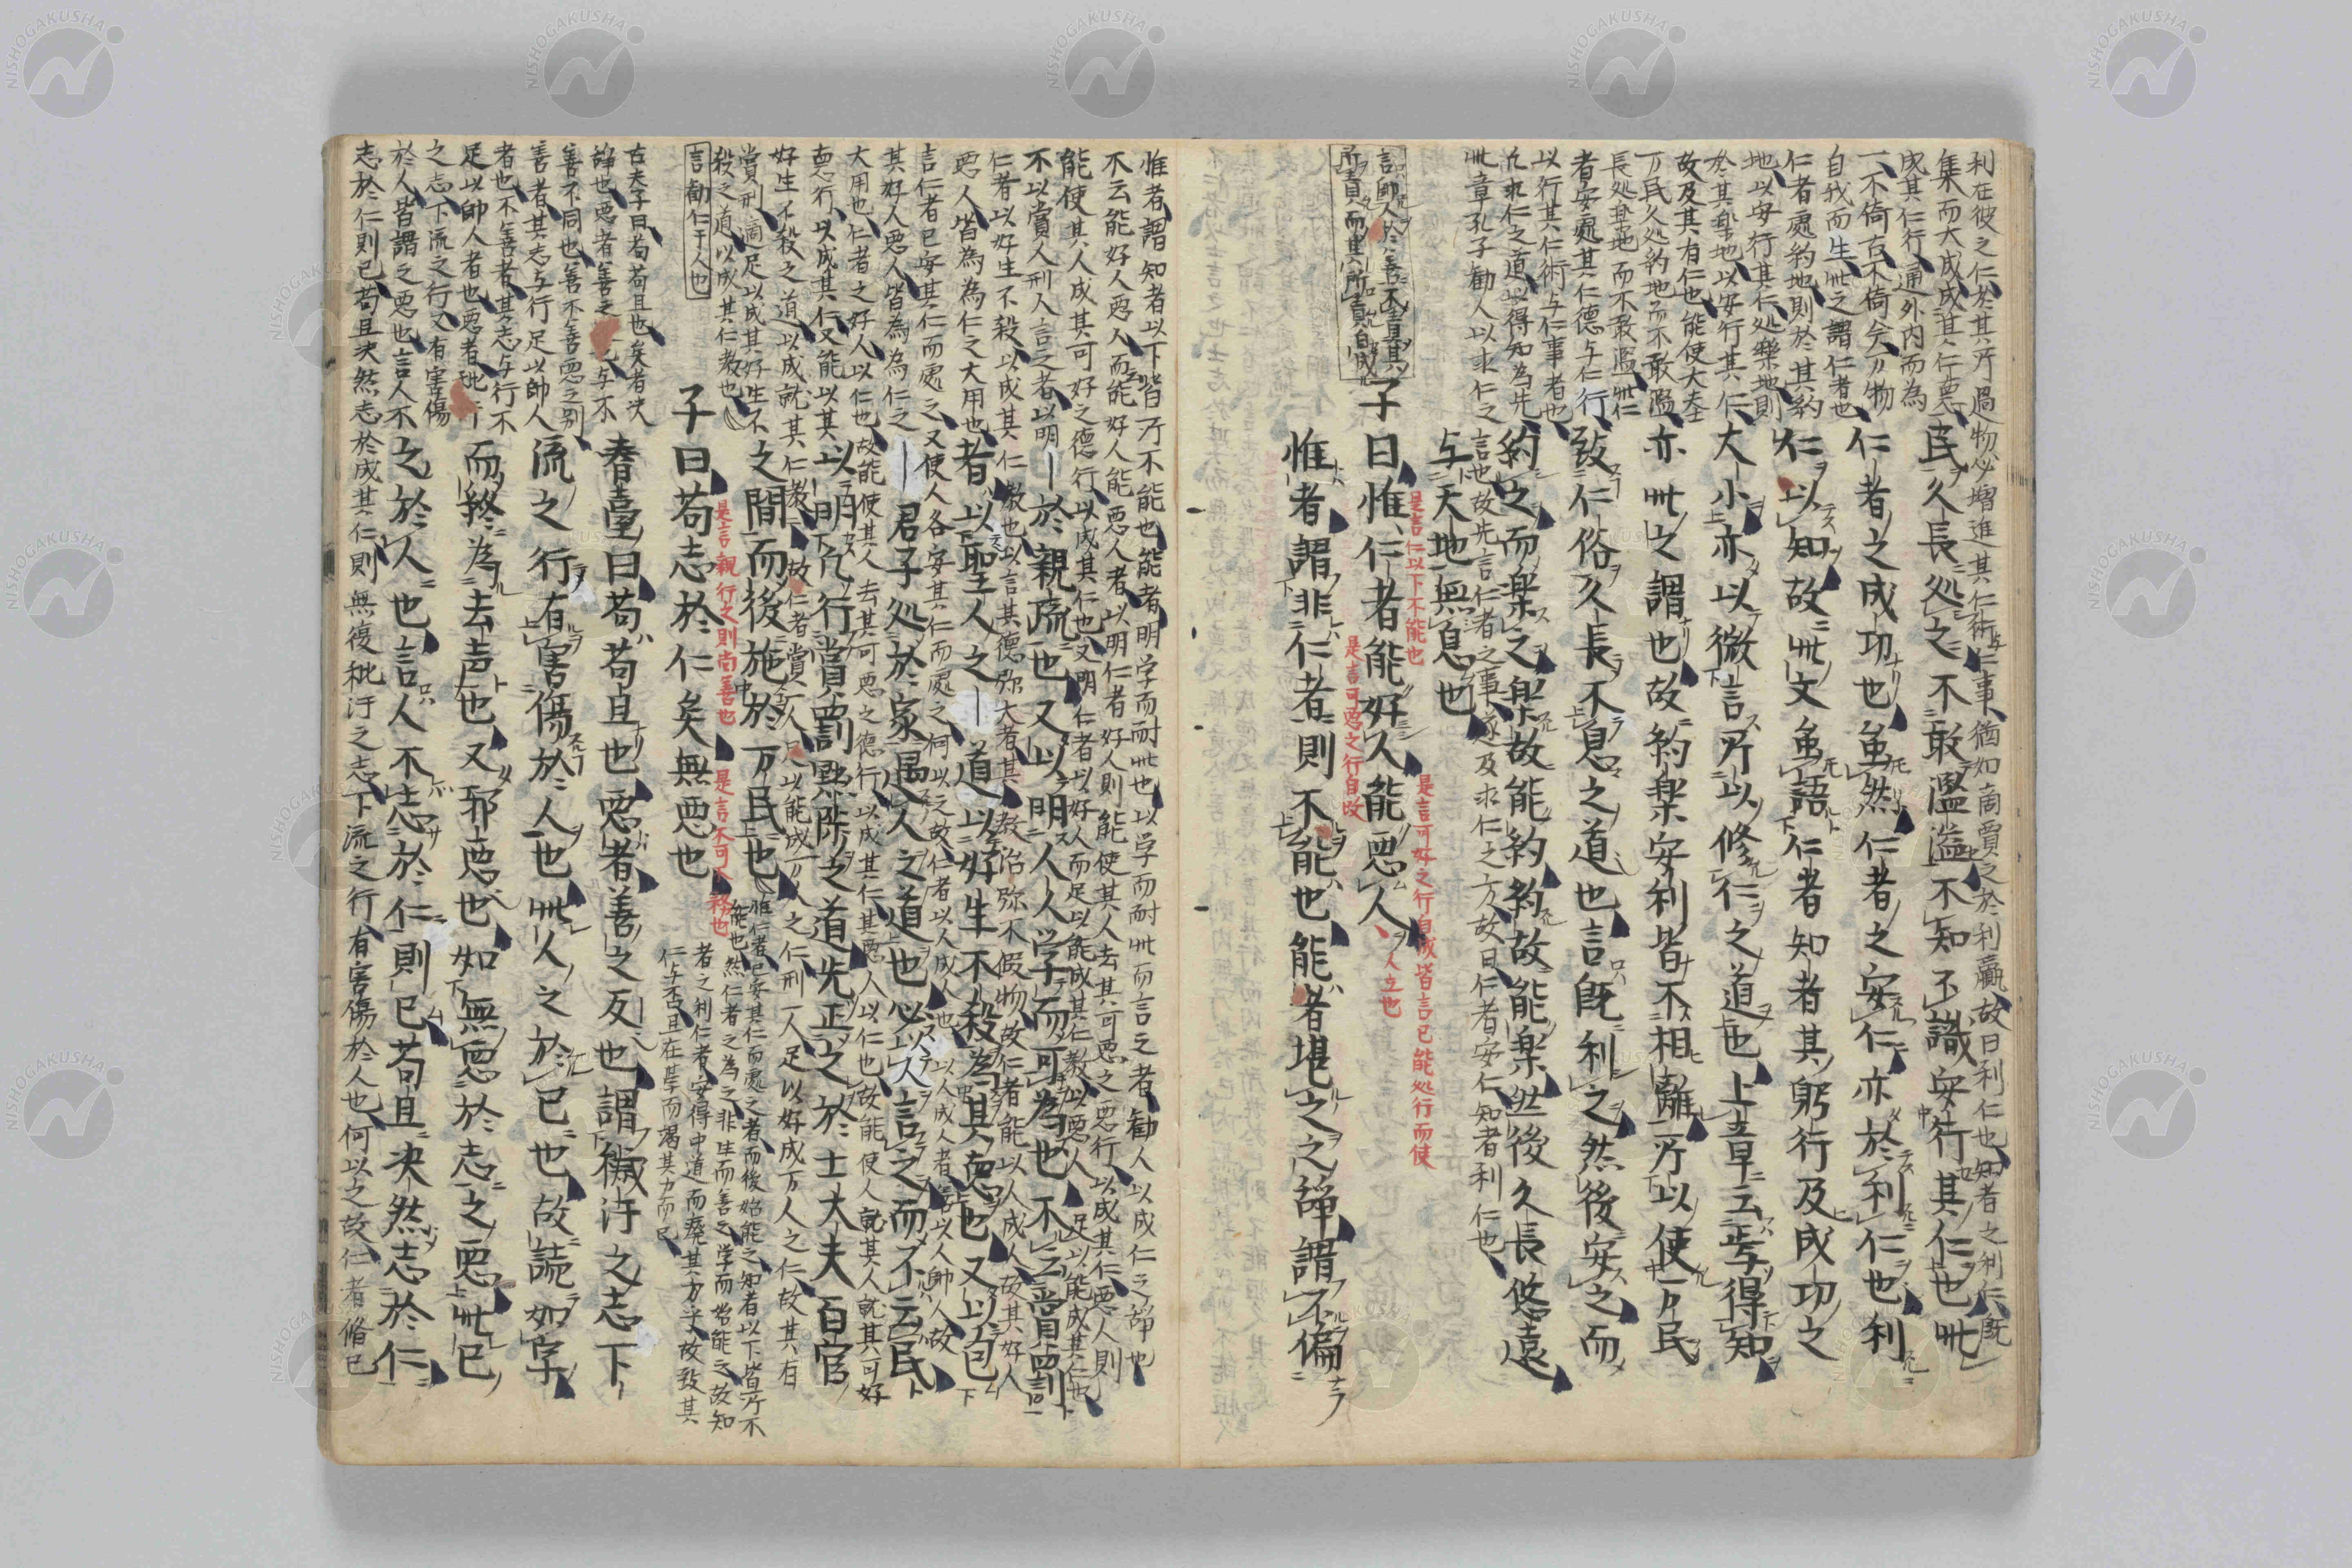 利在彼之仁於其所過物必増進其仁術与仁事猶如商賈之於利贏故曰利仁也知者之利仁既
集而大成成其仁悳
成其仁行通外内而為
一不倚古不倚今万物
自我而生此之謂仁者也
仁者處約地則於其約
地以安行其仁処樂地則
於其楽地以安行其仁
故及其有仁也能使大夫士
万民久処約地而不敢濫
長処楽地而不敢濫此仁
者安處其仁德与仁行
以行其仁術与仁事者也
凡求仁之道以得知為先
此章孔子勧人以求仁之
言也故先言仁者之事遂及求仁之方故曰仁者安仁知者利仁也
民久長処之不敢濫溢不知不識安行其仁也此
仁者之成功也虽然仁者之安仁亦於利仁也利
仁以知故此文虽語仁者知者其躬行及成功之
大小亦以微言所以修仁之道也上章云焉得知
亦此之謂也故約楽安利皆不相離所以使万民
致仁俗久長不息之道也言既利之然後安之而
約之而楽之楽故能約約故能楽然後久長悠遠
与天地無息也
言帥人於善不責其
所責而其所責自成
子曰惟仁者能好人能悪人
是言仁以下不能也
是言可好之行自成皆言已能処行而使
人之也
是言可悪之行自改
惟者謂非仁者則不能也能者堪之之辞謂不偏
惟者謂知者以下皆所不能也能者明学而耐此也以学而耐此而言之者勧人以成仁之辞也
不云能好人悪人而能好人能悪人者以明仁者好人則能使其人去其可悪之悪行以成其仁悪人則
能使其人成其可好之德行以成其仁也又明仁者以好人而足以能成其仁教以悪人足以能成其仁也
不以賞人刑人言之者以明
仁者以好生不殺以成其仁教也以言其德弥大者其教治弥不假物故仁者能以人成人故其好人
悪人皆為為仁之大用也
言仁者已安其仁而處之又使人各安其仁而處之何以之故仁者以人成人也以人成人者善以人帥人故
其好人悪人皆為為仁之
大用也仁者之好人以仁也故能使其人去其可悪之德行以成其仁其悪人以仁也故能使人就其人就其可好
悳行以成其仁又能以其
好生不殺之道以成就其仁教故仁者賞一人足以能成万人之仁刑一人足以好成万人之仁故其有
賞刑適足以成其好生不
殺之道以成其仁教也
言勧仁于人也
於親疏也又以明人人学而可為也不云賞罰
者以聖人之道以好生不殺為其悳也又以包
君子処於家遇人之道也必以人言之而不云民
以明凡行賞罰黜陟之道先正之於士大夫百官
之間而後施於万民也
惟仁者已安其仁而處之者而後始能之知者以下皆所不
能也然仁者之為之非生而善之学而始能之故知
者之利仁者安得中道而癈其方乎故致其
仁与否且在學而竭其力而已
子曰苟志於仁矣無悪也
是言親行之則尚善也
是言不可不務也
古夫子曰苟苟且也矣者决
辞也悪者善之
善不同也善不善悪之别
善者其志与行足以帥人
者也不善者其志与行不
足以帥人者也悪者
之志下流之行又有害傷
於人皆謂之悪也言人不
志於仁則已苟且决然志於成其仁則無復秕汙之志下流之行有害傷於人也何以之故仁者脩已
春臺曰苟苟且也悪者善之反也謂穢汙之志下
流之行有害傷於人也此人之於已也故読如字
而終為去声也又邪悪也知無悪於志之悪此已
之於人也言人不志於仁則已苟且决然志於仁